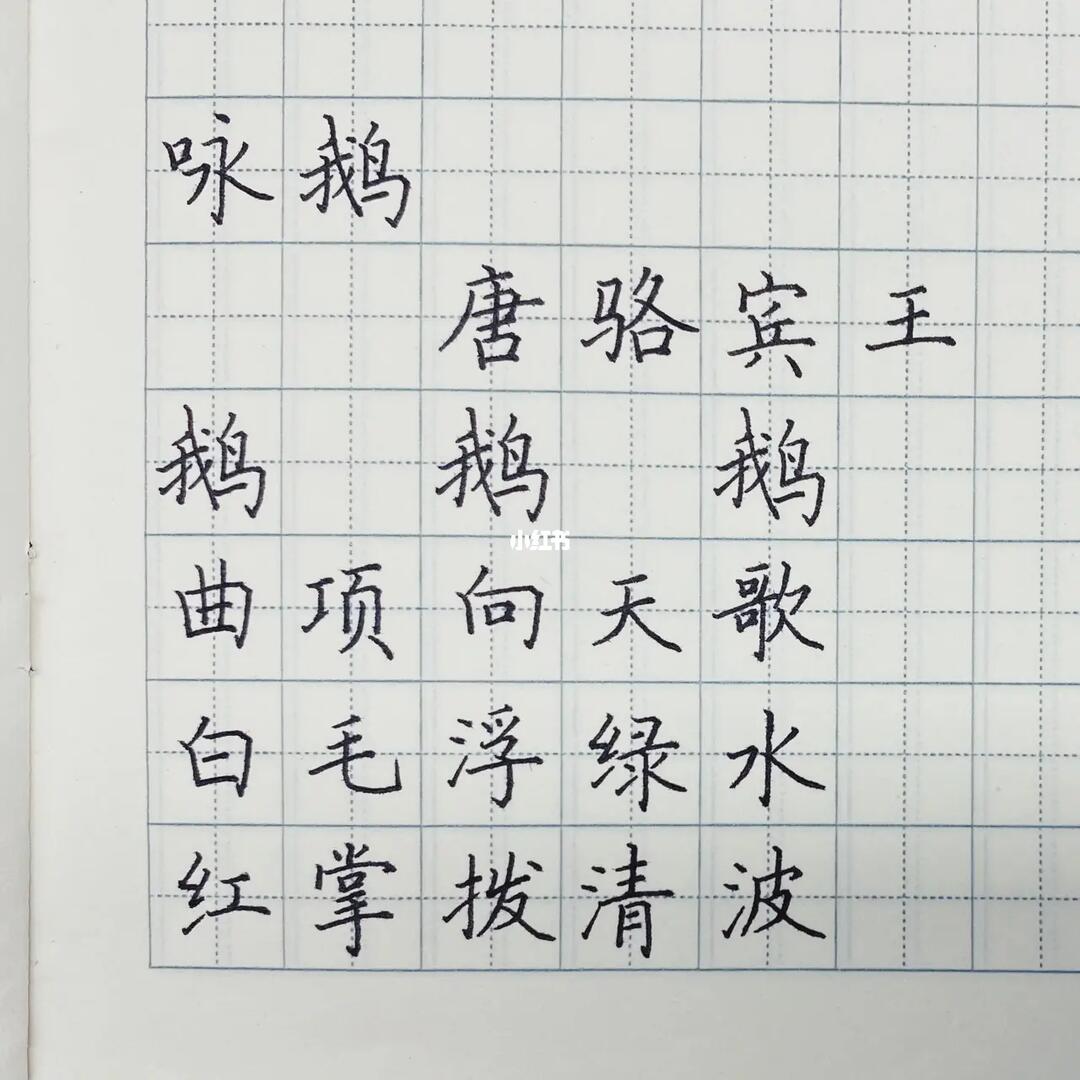 咏鹅
唐骆宾王
鹅 鹅 鹅
小红书
曲项向天歌
白毛浮绿水
红掌拨清波